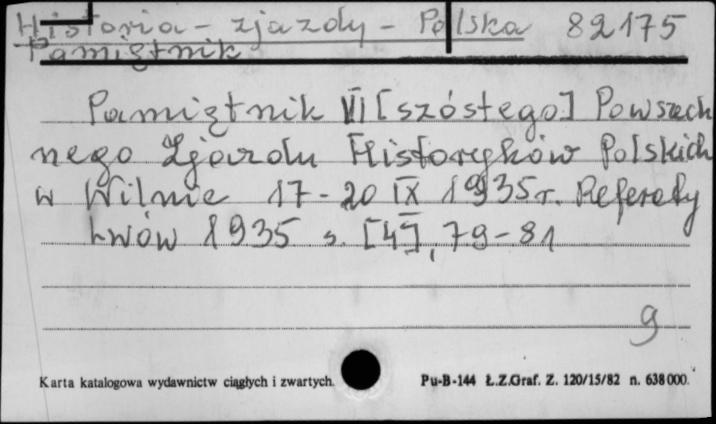 Historia - zjazdy - Polska 82175
Pamiętnik
Pamiętnik VI [szóstego] Powszech
nego Zjazdu Historyków Polskich
w Wilnie 17-20 IX 1935 r. Referaty
Lwów 1935 s. [4], 79-81
9
Karta katalogowa wydawnictw ciągłych i zwartych.
Pu-B-144 Ł.Z.Graf. Z. 120/15/82 n. 638 000.